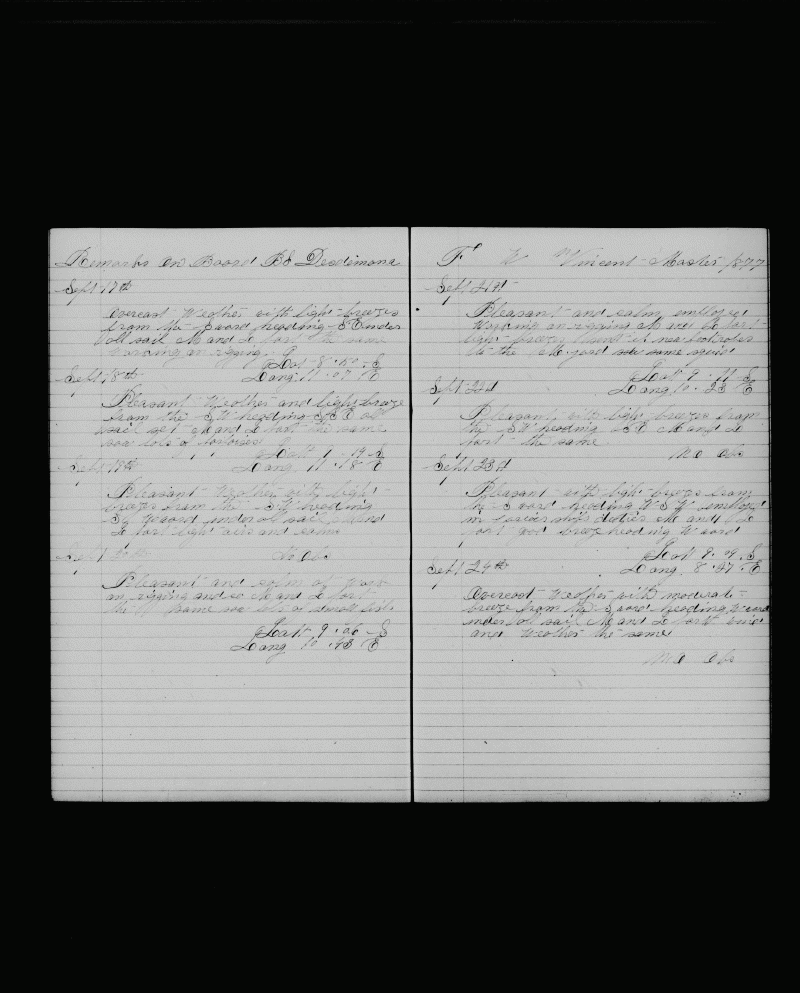 Remarks On Board Bk Desdimona
Sept 17th
Overcast Weather with light breezes
from the S ward heading S E under
all sail M and L part the same
working on rigging
Lat 8 . S
Long 11 . 07 E
Sept 18th
Pleasant Weather and light breeze
from the S W heading S S E all
sail set M and L part the same
saw lots of
Lat 9 . 19 S
Long 11 . 18 E
Sept 19th
Pleasant Weather with light
breezes from the S W heading
W ward under all sail M and
L part light airs and calms
Sept No Obs
Pleasant and calm at work
on rigging and so M and L part
the same saw lots of small fish
Lat 9 . 06 S
Long 10 . 43 E
F W Vincent Master 1877
Sept 21st
Pleasant and calm employed
working on rigging M and L part
light breezy
to the M yard same
Lat 9 . 11 S
Long 10 . 23 E
Sept 22d
Pleasant with light breeze from
the S W heading S E M and L
part the same
No Obs
Sept 23d
Pleasant with light breeze from
the S ward heading W S W employed
in various ships duties M and L
part good breeze heading W ward
Lat 9 . 09 S
Long 8 . 47 E
Sept 24th
Overcast Weather with moderate
breeze from the S ward heading W ward
under all sail M and L part wind
and Weather the same
No Obs